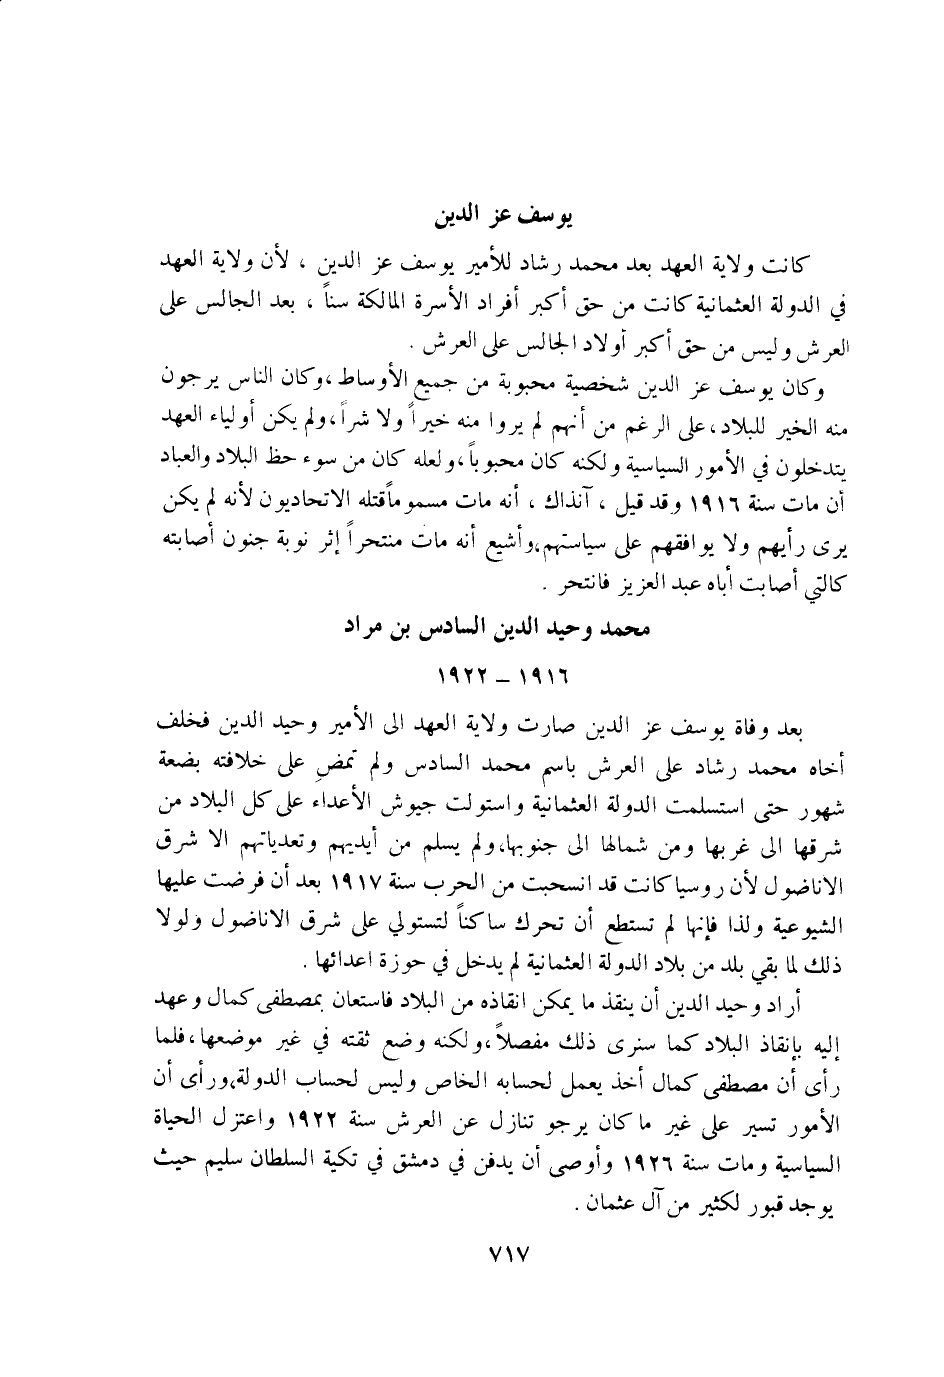 يوسف عز الدين
كانت ولاية العهد بعد محمد رشاد للأمير يوسف عز الدين ، لأن ولاية العهد
في الدولة العثمانية كانت من حق أكبر أفراد الأسرة المالكة سناً ، بعد الجالس على
العرش وليس من حق أكبر أولاد الجالس على العرش .
وكان يوسف عز الدين شخصية محبوبة من جميع الأوساط ، وكان الناس يرجون
منه الخير للبلاد ، على الرغم من أنهم لم يروا منه خيراً ولا شراً ، ولم يكن أولياء العهد
يتدخلون في الأمور السياسية ولكنه كان محبوباً ، ولعله كان من سوء حظ البلاد والعباد
أن مات سنة ١٩١٦ وقد قيل ، آنذاك ، أنه مات مسموماً قتله الاتحاديون لأنه لم يكن
يرى رأيهم ولا يوافقهم على سياستهم ، وأشيع أنه مات منتحراً إثر نوبة جنون أصابته
كالتي أصابت أباه عبد العزيز فانتحر .
محمد وحيد الدين السادس بن مراد
١٩١٦ – ١٩٢٢
بعد وفاة يوسف عز الدين صارت ولاية العهد الى الأمير وحيد الدين فخلف
أخاه محمد رشاد على العرش باسم محمد السادس ولم تمضِ على خلافته بضعة
شهور حتى استسلمت الدولة العثمانية واستولت جيوش الأعداء على كل البلاد من
شرقها الى غربها ومن شمالها الى جنوبها ، ولم يسلم من أيديهم وتعدياتهم الا شرق
الاناضول لأن روسيا كانت قد انسحبت من الحرب سنة ١٩١٧ بعد أن فرضت عليها
الشيوعية ولذا فإنها لم تستطع أن تحرك ساكناً لتستولي على شرق الاناضول ولولا
ذلك لما بقي بلد من بلاد الدولة العثمانية لم يدخل في حوزة اعدائها .
أراد وحيد الدين أن ينقذ ما يمكن انقاذه من البلاد فاستعان بمصطفى كمال وعهد
إليه بإنقاذ البلاد كما سنرى ذلك مفصلاً ، ولكنه وضع ثقته في غير موضعها ، فلما
رأى أن مصطفى كمال أخذ يعمل لحسابه الخاص وليس لحساب الدولة ، ورأى أن
الأمور تسير على غير ما كان يرجو تنازل عن العرش سنة ١٩٢٢ واعتزل الحياة
السياسية ومات سنة ١٩٢٦ وأوصى أن يدفن في دمشق في تكية السلطان سليم حيث
يوجد قبور لكثير من آل عثمان .
٧١٧